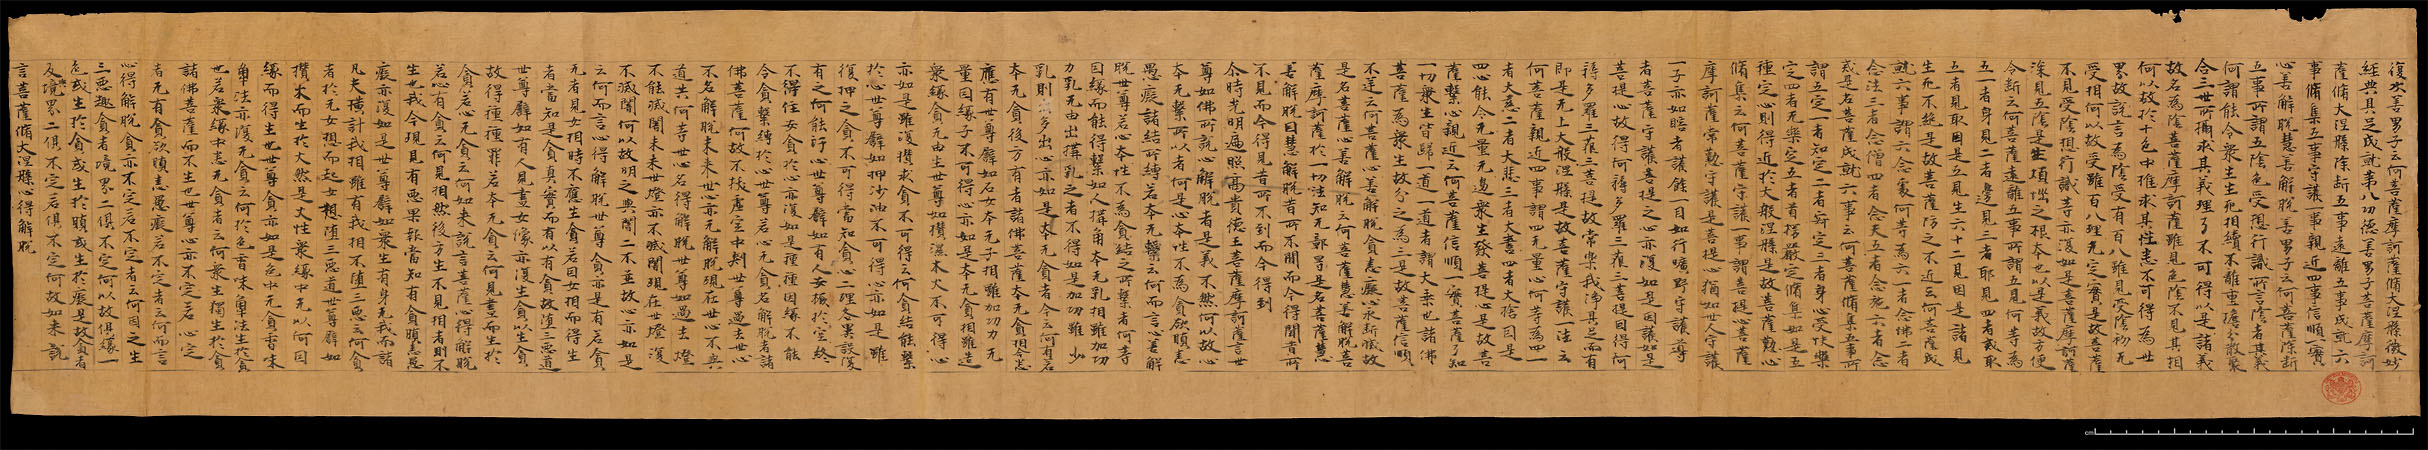 復次善男子云何菩薩摩訶薩脩大涅槃微妙
經典具足成就第八功德善男子菩薩摩訶
薩脩大涅槃除斷五事遠離五事成就六
事脩集五事守護一事親近四事信順一實
心善解脫慧善解脫善男子云何菩薩除斷
五事所謂五陰色受想行識所言陰者其義
何謂能令衆生生死相續不離重擔分散聚
合三世所攝求其義理了不可得以是諸義
故名為陰菩薩摩訶薩雖見色陰不見其相
何以故於十色中推求其性悉不可得為世
界故說言為陰受有百八雖見受陰初无
受相何以故受雖百八理无定實是故菩薩
不見受陰想行識等亦復如是菩薩摩訶薩
深見五陰是生煩惱之根本也以是義故方便
令斷云何菩薩遠離五事所謂五見何等為
五一者身見二者邊見三者耶見四者戒取
五者見取因是五見生六十二見因是諸見
生死不絕是故菩薩防之不近云何菩薩成
就六事謂六念處何等為六一者念佛二者
念法三者念僧四者念天五者念施六者念
戒是名菩薩成就六事云何菩薩脩集五事所
謂五定一者知定二者寂定三者身心受快樂
定四者无樂定五者首楞嚴定脩集如是五
種定心則得近於大般涅槃是故菩薩勤心
脩集云何菩薩守護一事謂菩提心菩薩
摩訶薩常勤守護是菩提心猶如世人守護
一子亦如瞎者護餘一目如行曠野守護導
者菩薩守護菩提之心亦復如是因護如是
菩提心故得阿耨多羅三藐三菩提因得阿
耨多羅三藐三菩提故常樂我淨具足而有
即是无上大般涅槃是故菩薩守護一法云
何菩薩親近四事謂四无量心何等為四一
者大慈二者大悲三者大喜四者大捨因是
四心能令无量无邊衆生發菩提心是故菩
薩繫心親近云何菩薩信順一實菩薩了知
一切衆生皆歸一道一道者謂大乘也諸佛
菩薩為衆生故分之為三是故菩薩信順
不逆云何菩薩心善解脫貪恚癡心永斷滅故
是名菩薩心善解脫云何菩薩慧善解脫菩
薩摩訶薩於一切法知无鄣导是名菩薩慧
善解脫因慧解脫昔所不聞而今得聞昔所
不見而今得見昔所不到而今得到
尒時光明遍照高貴德王菩薩摩訶薩言世
尊如佛所說心解脫者是義不然何以故心
本无繫所以者何是心本性不為貪欲瞋恚
愚癡諸結所縛若本无繫云何而言心善解
脫世尊若心本性不為貪結之所繫者何等
因緣而能得繫如人搆角本无乳相雖加功
力乳无由出搆乳之者不得如是加功雖少
乳則多出心亦如是本无貪者今云何有若
本无貪後方有者諸佛菩薩本无貪相今悉
應有世尊譬如石女本无子相雖加功力无
量因緣子不可得心亦如是本无貪相雖造
衆緣貪无由生世尊如攢濕木火不可得心
亦如是雖復攢求貪不可得云何貪結能繫
於心世尊譬如押沙油不可得心亦如是雖
復押之貪不可得當知貪心二理各異設復
有之何能污心世尊譬如有人安橛於空終
不得住安貪於心亦復如是種種因緣不能
令貪繫縛於心世尊若心无貪名解脫者諸
佛菩薩何故不拔虛空中刺世尊過去世心
不名解脫未來世心亦无解脫現在世心不與
道共何等世心名得解脫世尊如過去燈
不能滅闇未來世燈亦不滅闇現在世燈復
不滅闇何以故明之與闇二不並故心亦如是
云何而言心得解脫世尊貪亦是有若貪
无者見女相時不應生貪若因女相而得生
者當知是貪真實而有以有貪故墮三惡道
世尊譬如有人見畫女像亦復生貪以生貪
故得種種罪若本无貪云何見畫而生於
貪若心无貪云何如來說言菩薩心得解脫
若心有貪云何見相然後方生不見相者則不
生也我今現見有惡果報當知有貪瞋恚愚
癡亦復如是世尊譬如衆生有身无我而諸
凡夫橫計我相雖有我相不墮三惡云何貪
者於无女相而起女想墮三惡道世尊譬如
攢木而生於火然是火性衆緣中无以何因
緣而得生也世尊貪亦如是色中无貪香味
觸法亦復无貪云何於色香味觸法生於貪
也若衆緣中悉无貪者云何衆生獨生於貪
諸佛菩薩而不生也世尊心亦不定若心定
者无有貪欲瞋恚愚癡若不定者云何而言
心得解脫貪亦不定若不定者云何因之生
三惡趣貪者境界二俱不定何以故俱緣一
色或生於貪或生於瞋或生於癡是故貪者
及境界二俱不定若俱不定何故如來說
言菩薩脩大涅槃心得解脫